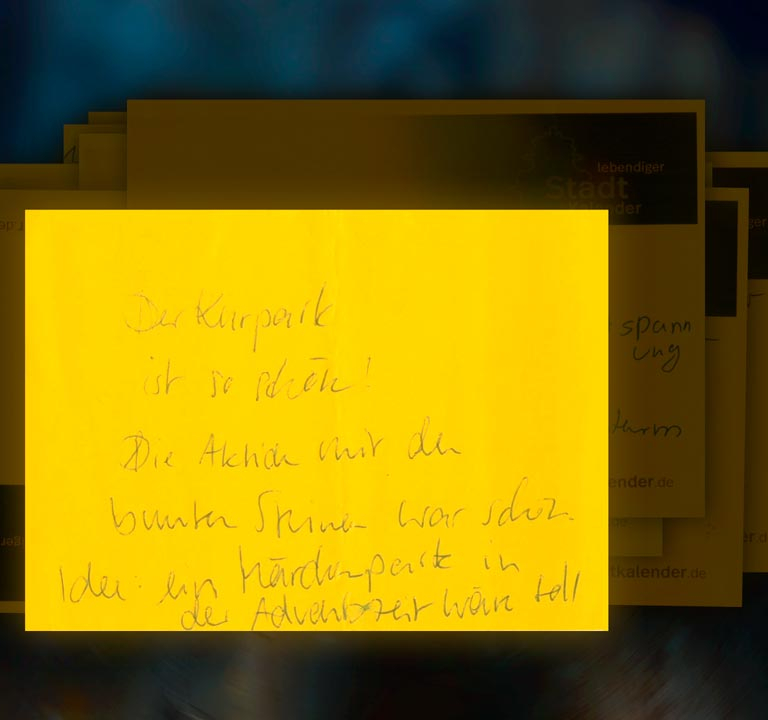 lebendiger
Stadt
Kalender
Der Kurpark
ist so schön!
Die Aktion mit den
bunten Steinen war schön.
Idee: ein Märchenpark in
der Adventszeit wäre toll
spann
ung
turm
ender.de
tkalender.de